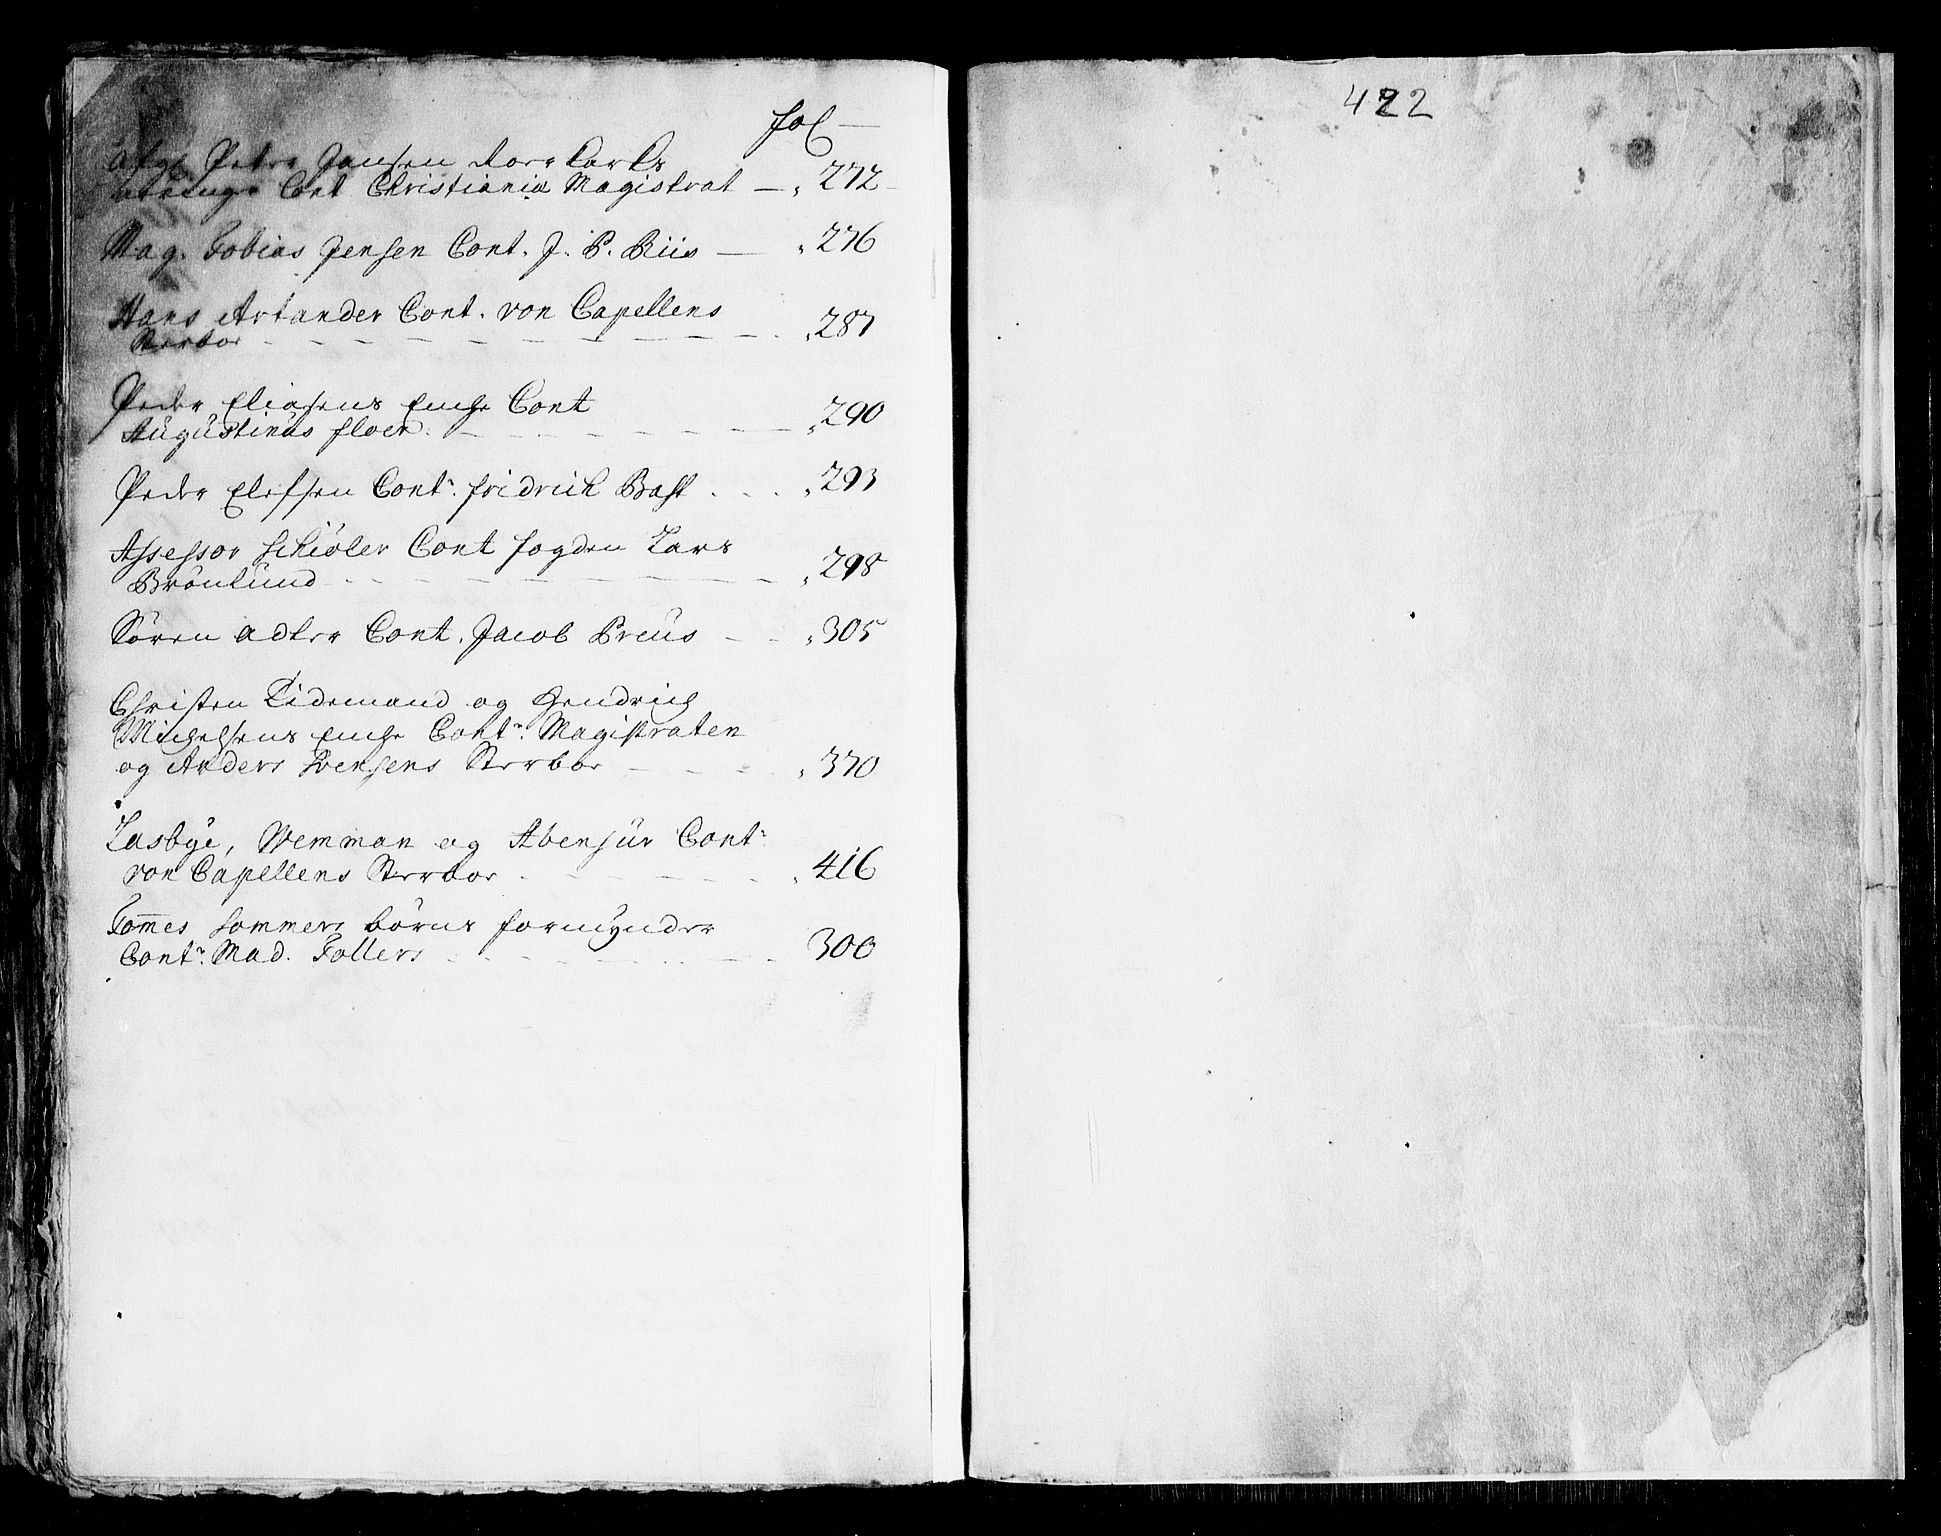 fol
afg: Peder Jansen
Cont Christiania Magistrat — 272
Mag. Tobias Jensen Cont. J. P. Riis — 276
Hans Artander Cont. von Capellens
Sterboe 287
Peder Eliasens Encke Cont
Augustinus Floer 290
Peder Elefsen Contr. Fridrich Bast 293
Assessor Schiöler Cont fogden Lars
Brönlund 298
Sören Adler Cont. Jacob Preus 305
Christen Tidemand og Hendrich
Michelsens Encke Contr. Magistraten
og Anders Svensens Sterboe 370
Lasbye, Wemman og Abensur Contr.
von Capellens Sterboe 416
Tomes Sommers börns formynder
Contr. Mad. Tollers 300
422